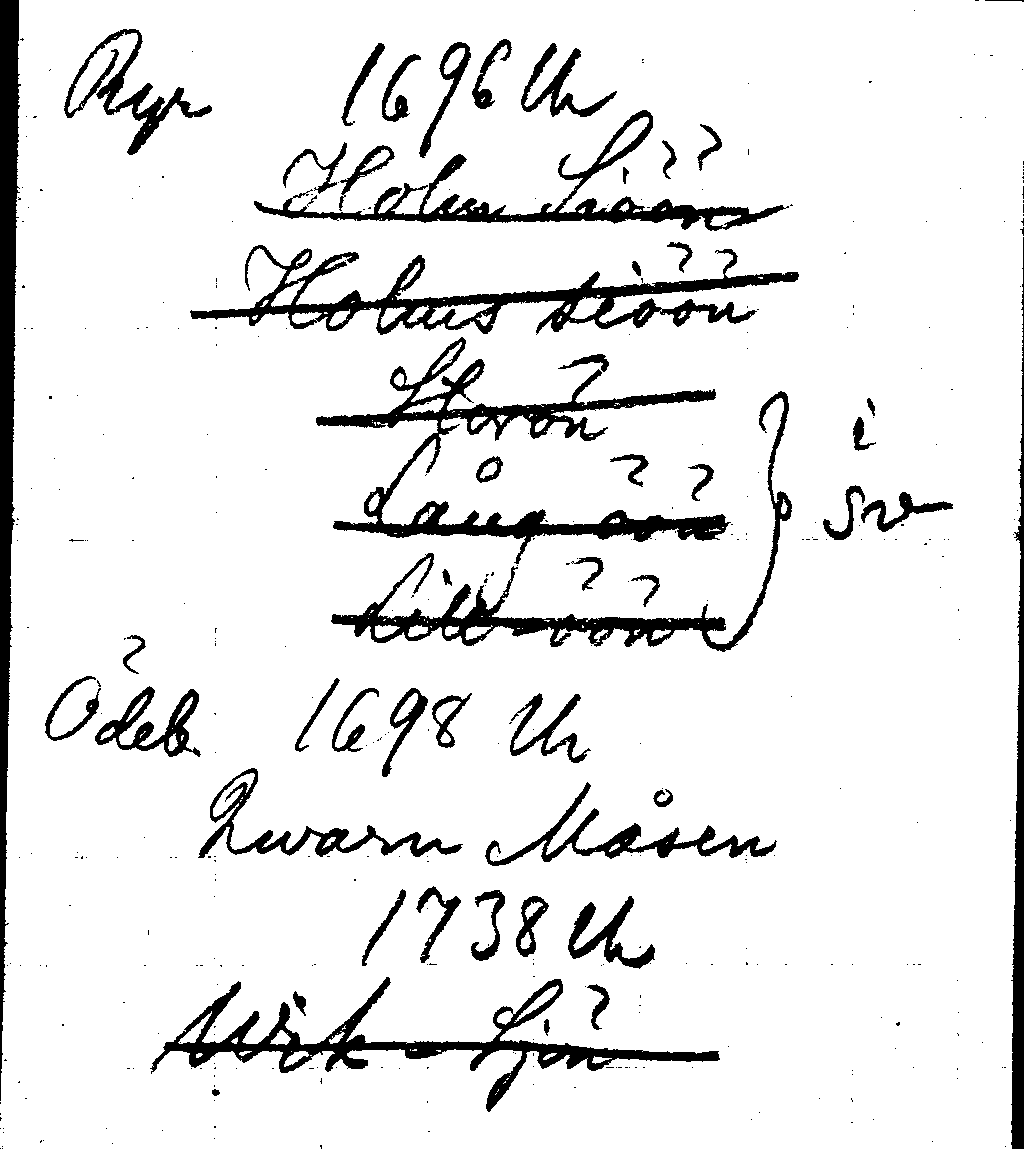 Ryr 1696 Uh
Holm Siöön
Holms siöön
Storön
Lång öön
i
sv
Lill-öön
Ödeb. 1698 Uh
Qwarn Måsen
1738 Uh
Wik-Sjön